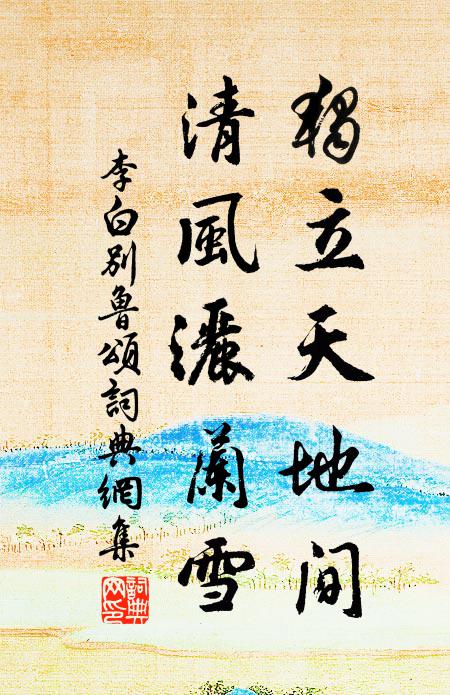 獨立天地間
清風灑蘭雪
李白別魯頌詞典網集